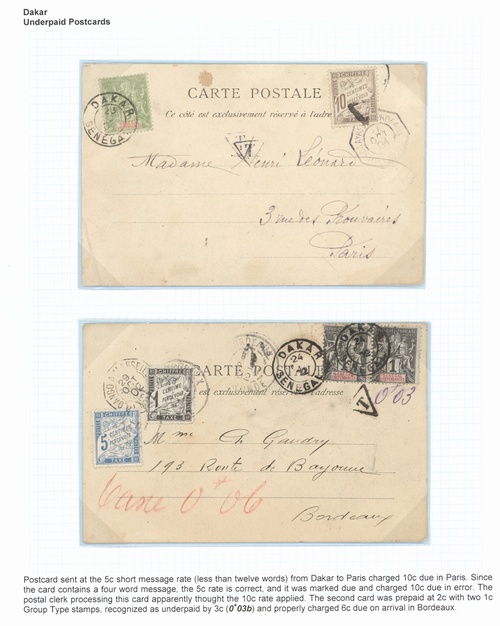 Dakar
Underpaid Postcards
CARTE POSTALE
Ce côté est exclusivement réservé à l'adre
10
CENTIMES
A PERCEVOIR
DAKAR
SENEGAL
T
Madame Henri Léonard
3 rue des
Paris
DAKAR
24
SENEGAL
CHIFFRE
1
TAXE
CHIFFRE
5
CENTIMES
A PERCEVOIR
TAXE
1
CARTE POSTALE
est exclusivement réservé à l'adresse
T
0*03
Mme Ch Gaudry
193 Route de Bayonne
Taxe 0*06
Bordeaux
Postcard sent at the 5c short message rate (less than twelve words) from Dakar to Paris charged 10c due in Paris. Since
the card contains a four word message, the 5c rate is correct, and it was marked due and charged 10c due in error. The
postal clerk processing this card apparently thought the 10c rate applied. The second card was prepaid at 2c with two 1c
Group Type stamps, recognized as underpaid by 3c (0*03b) and properly charged 6c due on arrival in Bordeaux.